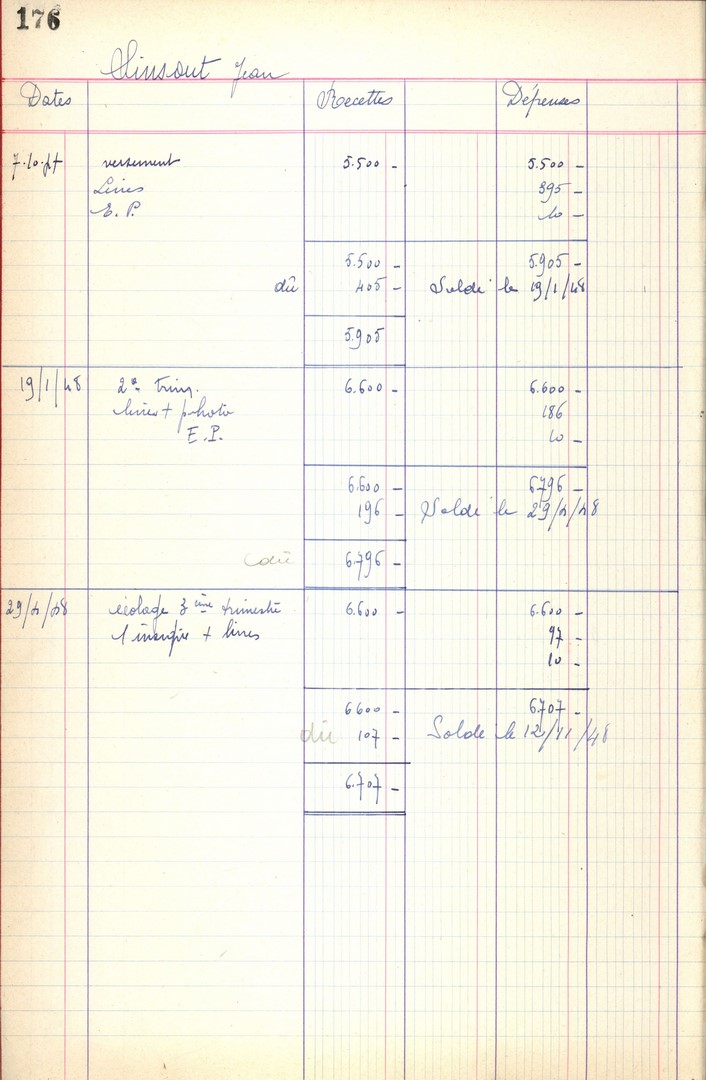 176
Jean
Dates Recettes Dépenses
7.10.47 versement 5.500 - 5.500 -
Livres 395 -
E.P. 10 -
5.500 - 5.905 -
dû 405 - Soldé le 19/1/48
5.905
19/1/48 2e trim. 6.600 - 6.600 -
livres + photo 186
E.P. 10 -
6.600 - 6796 -
196 - Soldé le 29/4/48
dû 6.796 -
29/4/48 écolage 3ème trimestre 6.600 - 6.600 -
1 + livres 97 -
10 -
6600 - 6.707 -
dû 107 - Soldé le 12/11/48
6.707 -